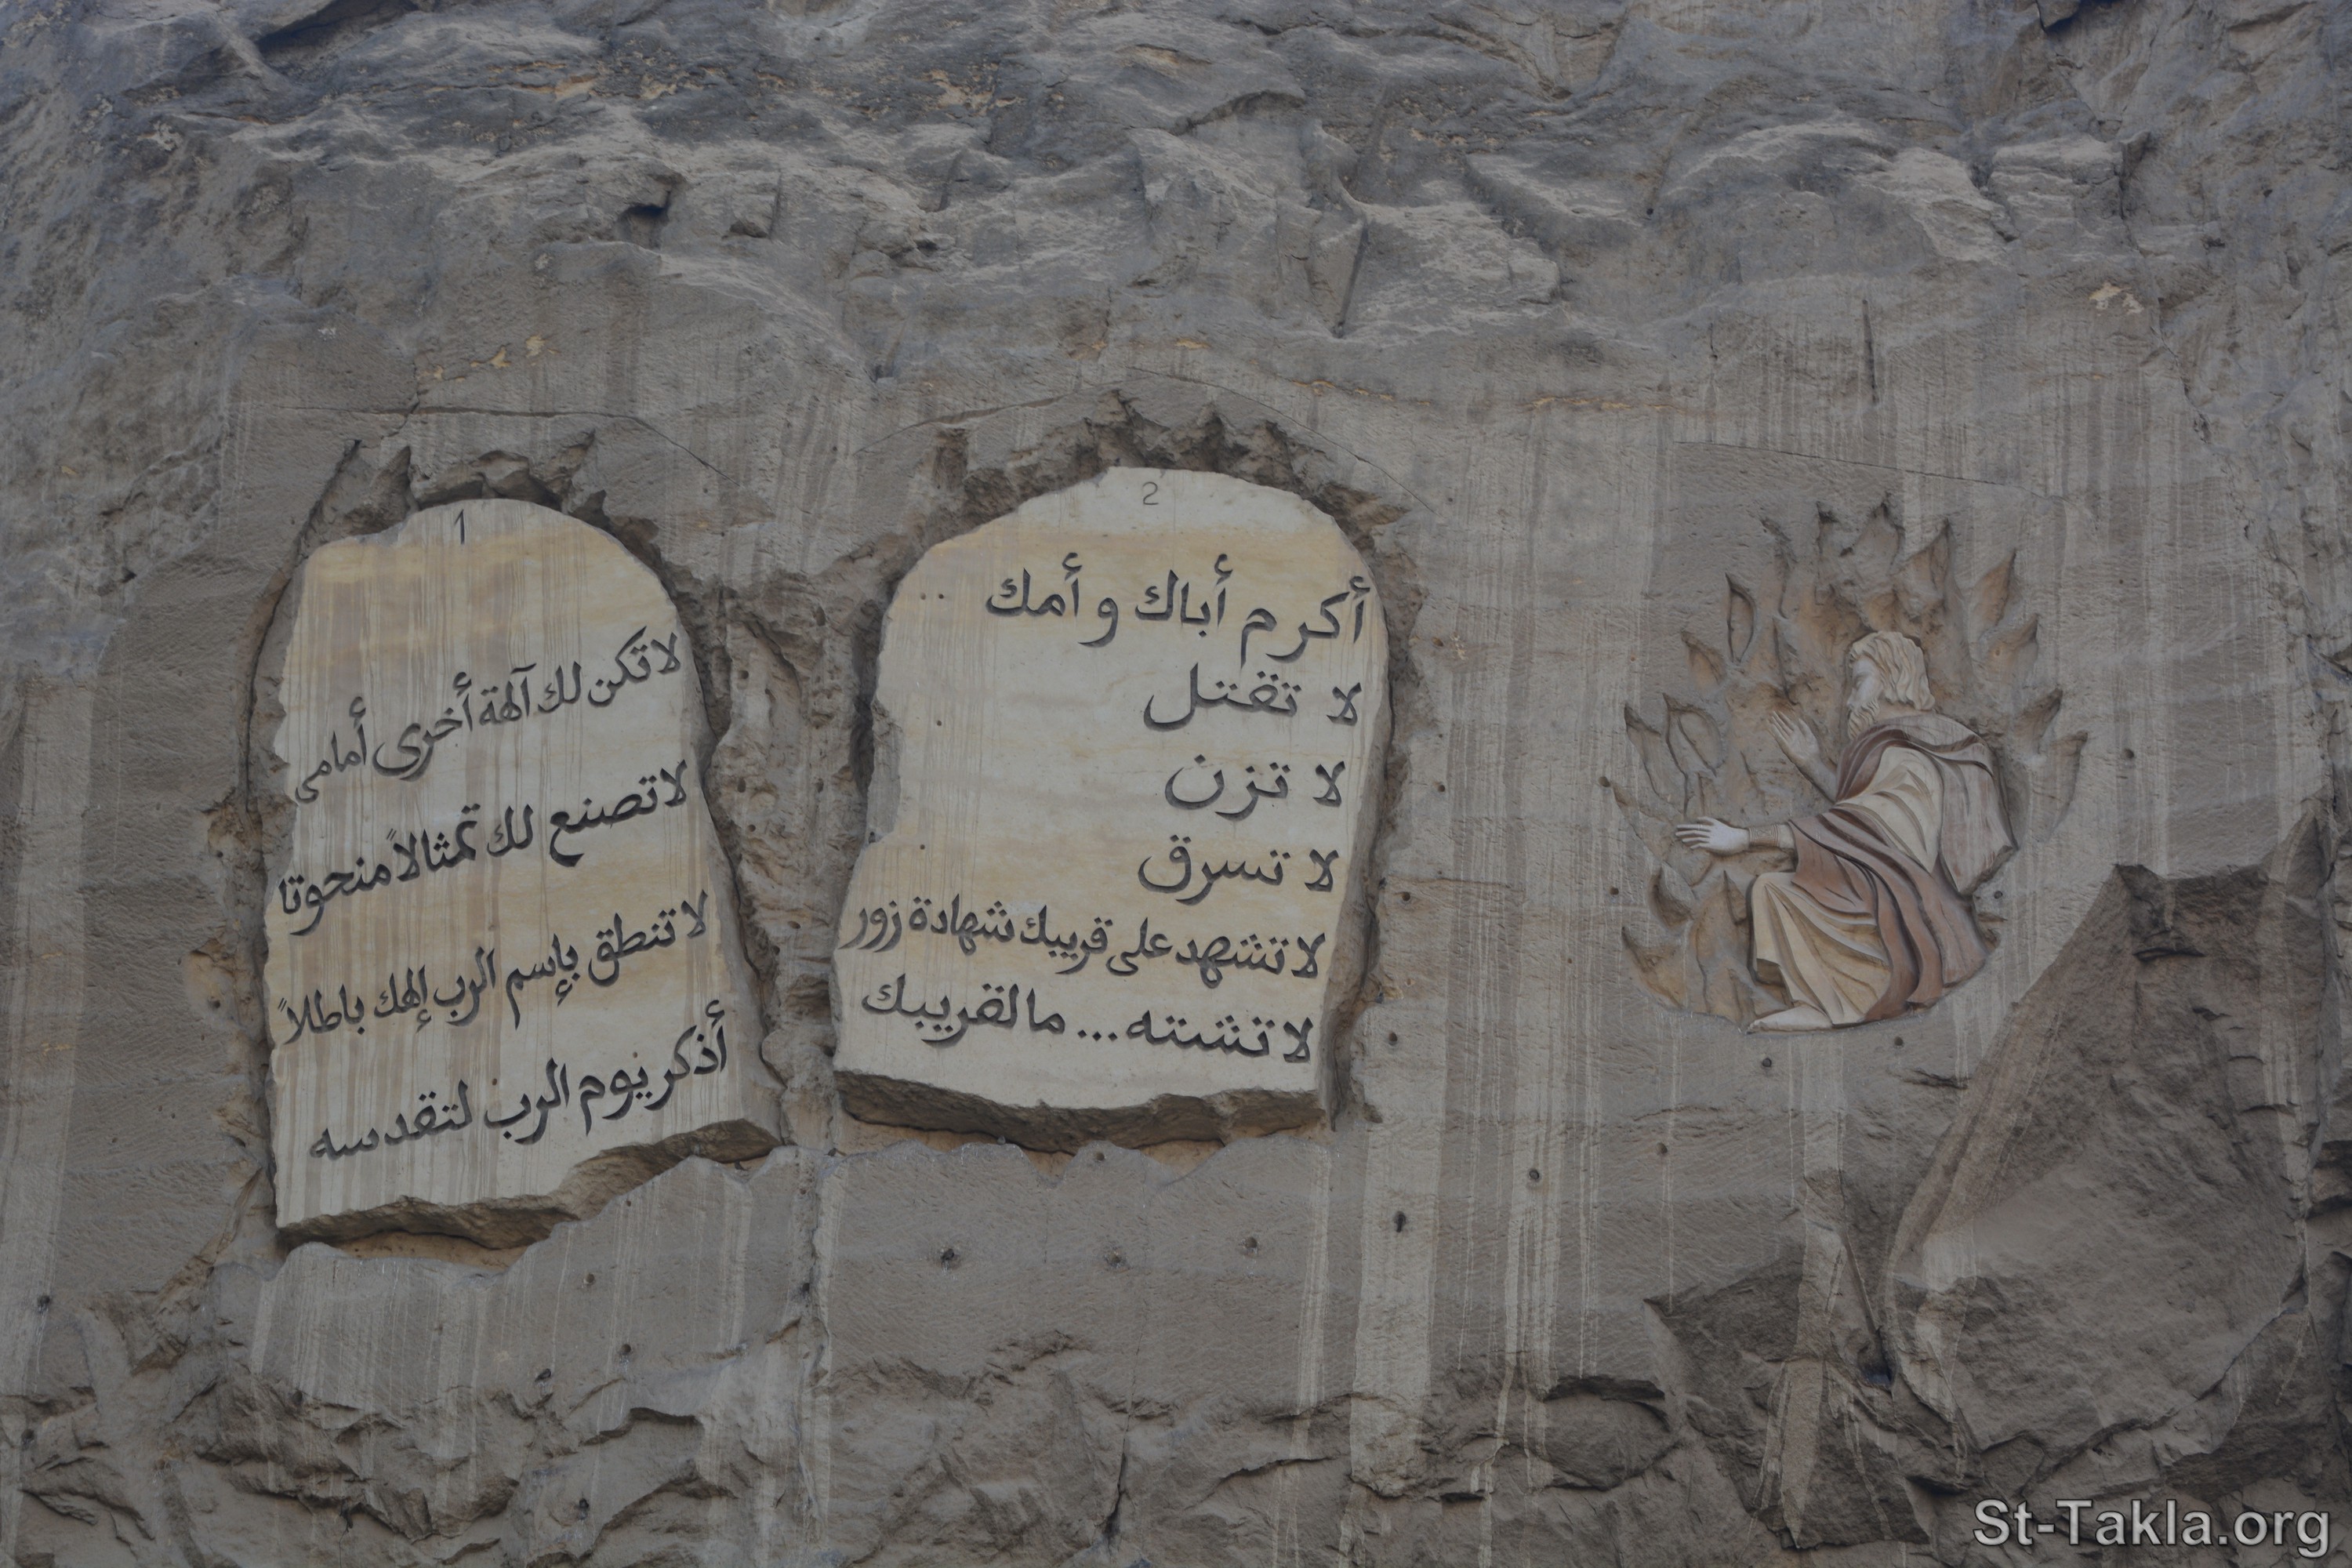 1
لا تكن لك آلهة أخرى أمامى
لا تصنع لك تمثالاً منحوتا
لا تنطق بإسم الرب إلهك باطلاً
أذكر يوم الرب لتقدسه
2
أكرم أباك و أمك ..
لا تقتل
لا تزن
لا تسرق
لا تشهد على قريبك شهادة زور
لا تشته... ما لقريبك
St-Takla.org